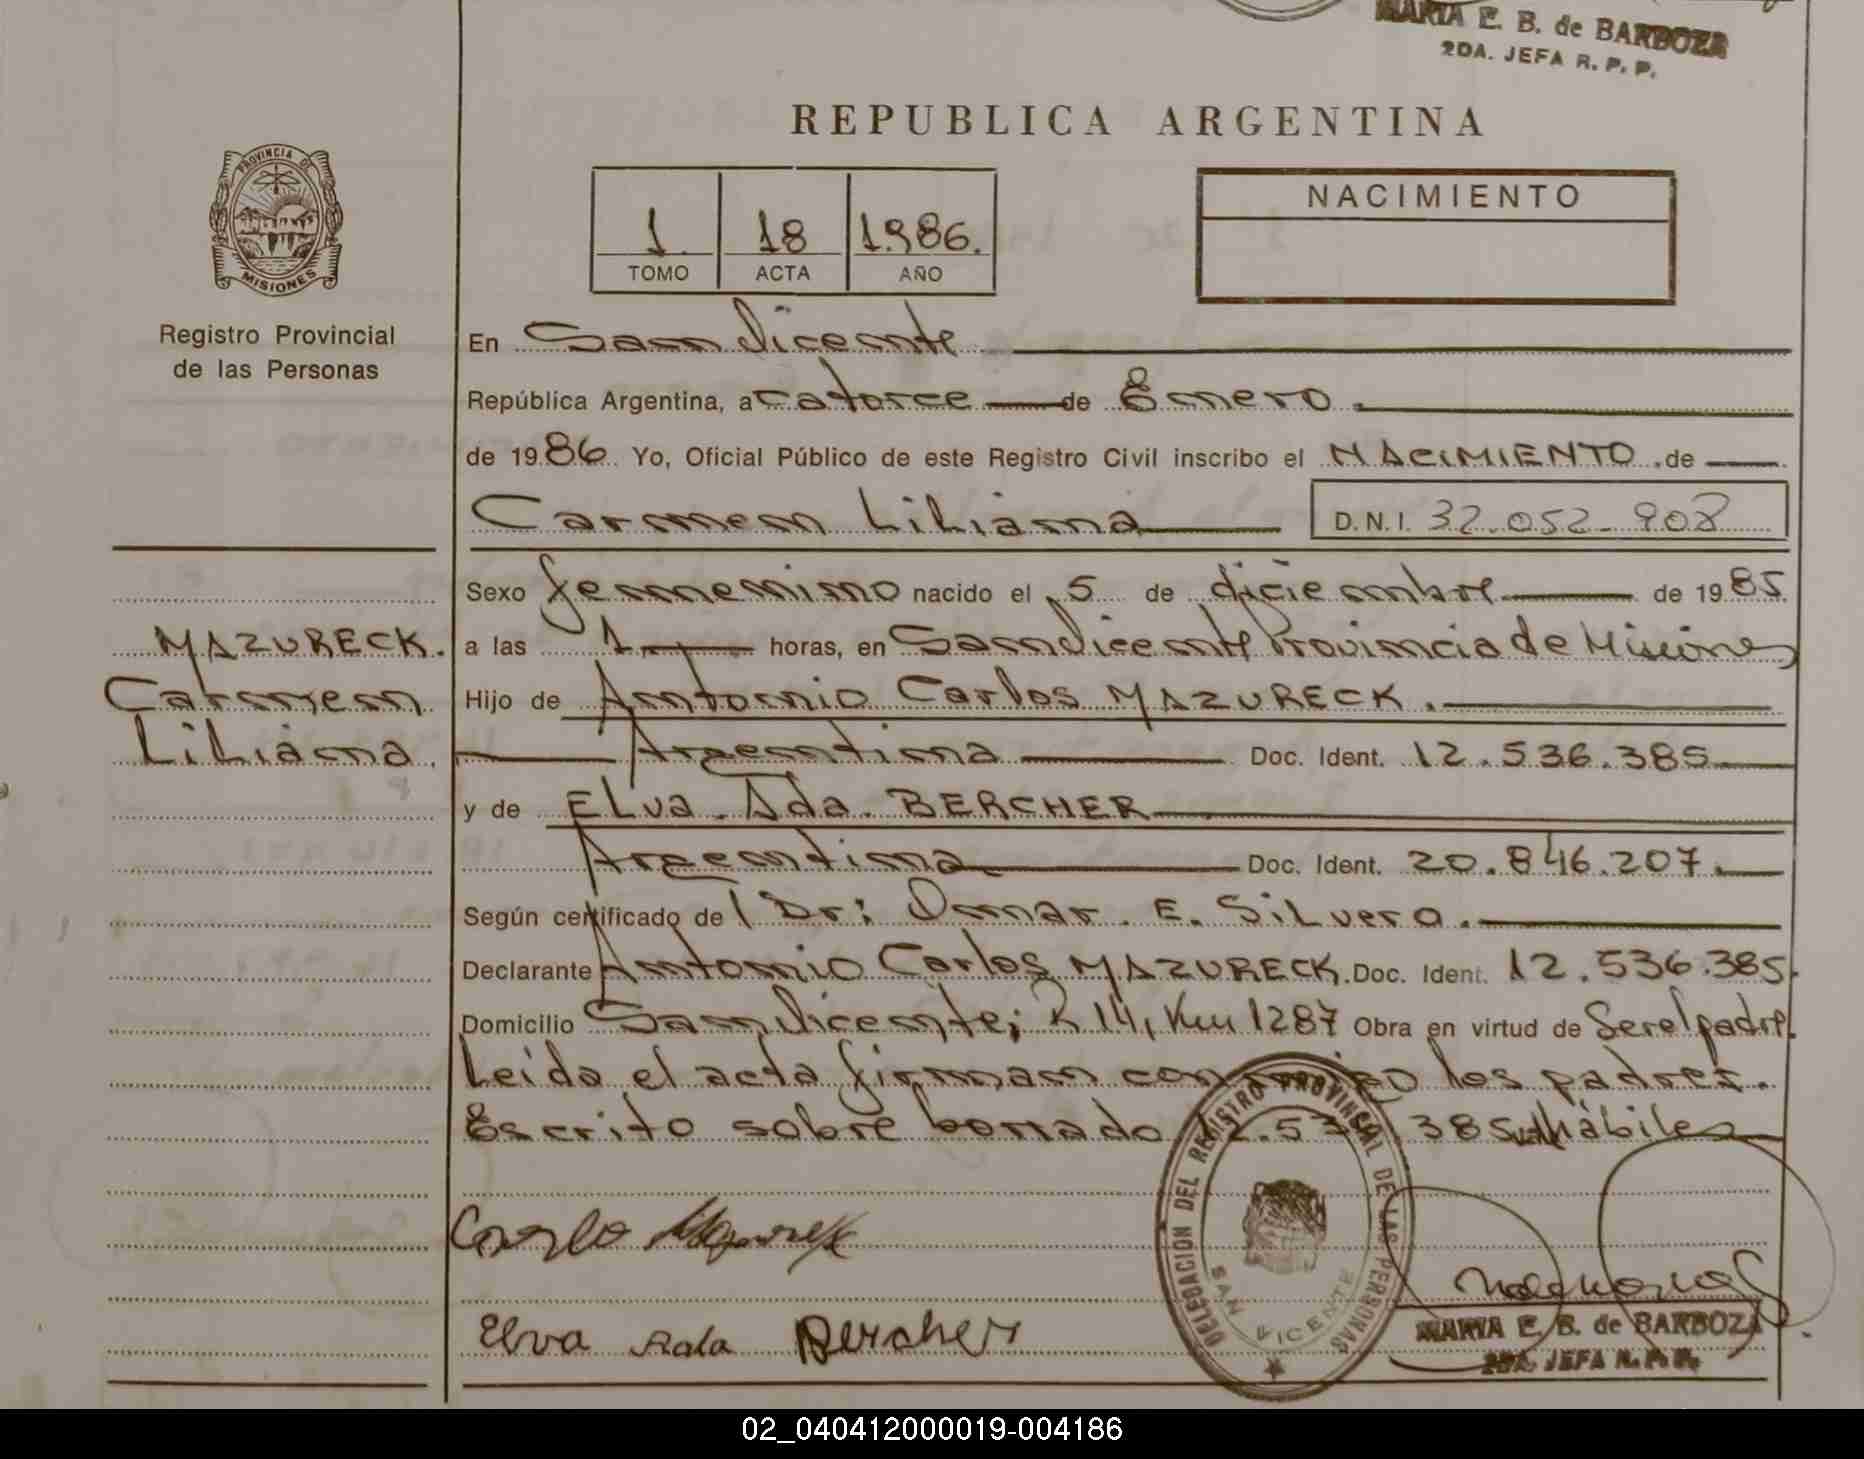 MARIA E. B. de BARBOZA
2DA. JEFA R. P. P.
REPUBLICA ARGENTINA
PROVINCIA DE
MISIONES
Registro Provincial
de las Personas
1. 18 1.986.
TOMO ACTA AÑO
NACIMIENTO
En San Vicente
República Argentina, a catorce de Enero.
de 1986 Yo, Oficial Público de este Registro Civil inscribo el NACIMIENTO de
Carmen Liliana D.N.I. 32.052.908
Sexo femenino nacido el 5 de diciembre de 1985
MAZURECK.
Carmen
Liliana.
a las 1 horas, en San Vicente Provincia de Misiones
Hijo de Antonio Carlos MAZURECK.
Argentina Doc. Ident. 12.536.385
y de ELva. Ada. BERCHER
Argentina Doc. Ident. 20.846.207.
Según certificado de Dr: Omar. E. SiLvero.
Declarante Antonio Carlos MAZURECK. Doc. Ident. 12.536.385.
Domicilio San Vicente; R 14, Km 1287 Obra en virtud de Ser el padre.
Leída el acta firman conmigo los padres.
Escrito sobre borrado 12.536.385 hábiles
DELEGACION DEL REGISTRO PROVINCIAL DE LAS PERSONAS
SAN VICENTE
Carlo Mazureck
Elva Ada Bercher
MARIA E. B. de BARBOZA
2DA. JEFA R. P. P.
02_040412000019-004186